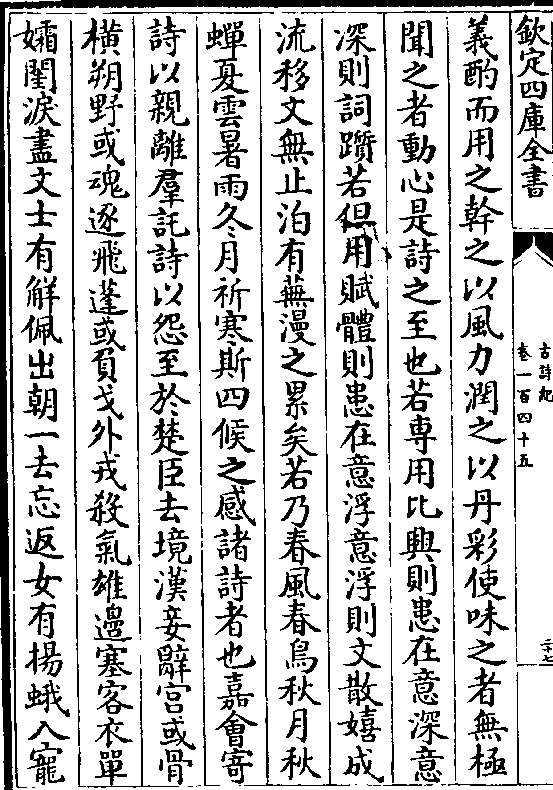 欽定四庫全書
古詩紀
卷一百四十五
二十七
義酌而用之幹之以風力潤之以丹彩使味之者無極
聞之者動心是詩之至也若専用比興則患在意深意
深則詞躓若但用賦體則患在意浮意浮則文散嬉成
流移文無止泊有蕪漫之累矣若乃春風春鳥秋月秋
蟬夏雲暑雨冬月祈寒斯四候之感諸詩者也嘉會寄
詩以親離羣託詩以怨至於楚臣去境漢妾辭宫或骨
横朔野或魂逐飛蓬或負戈外戎殺氣雄邉塞客衣單
孀閨淚盡文士有解佩出朝一去忘返女有揚蛾入寵